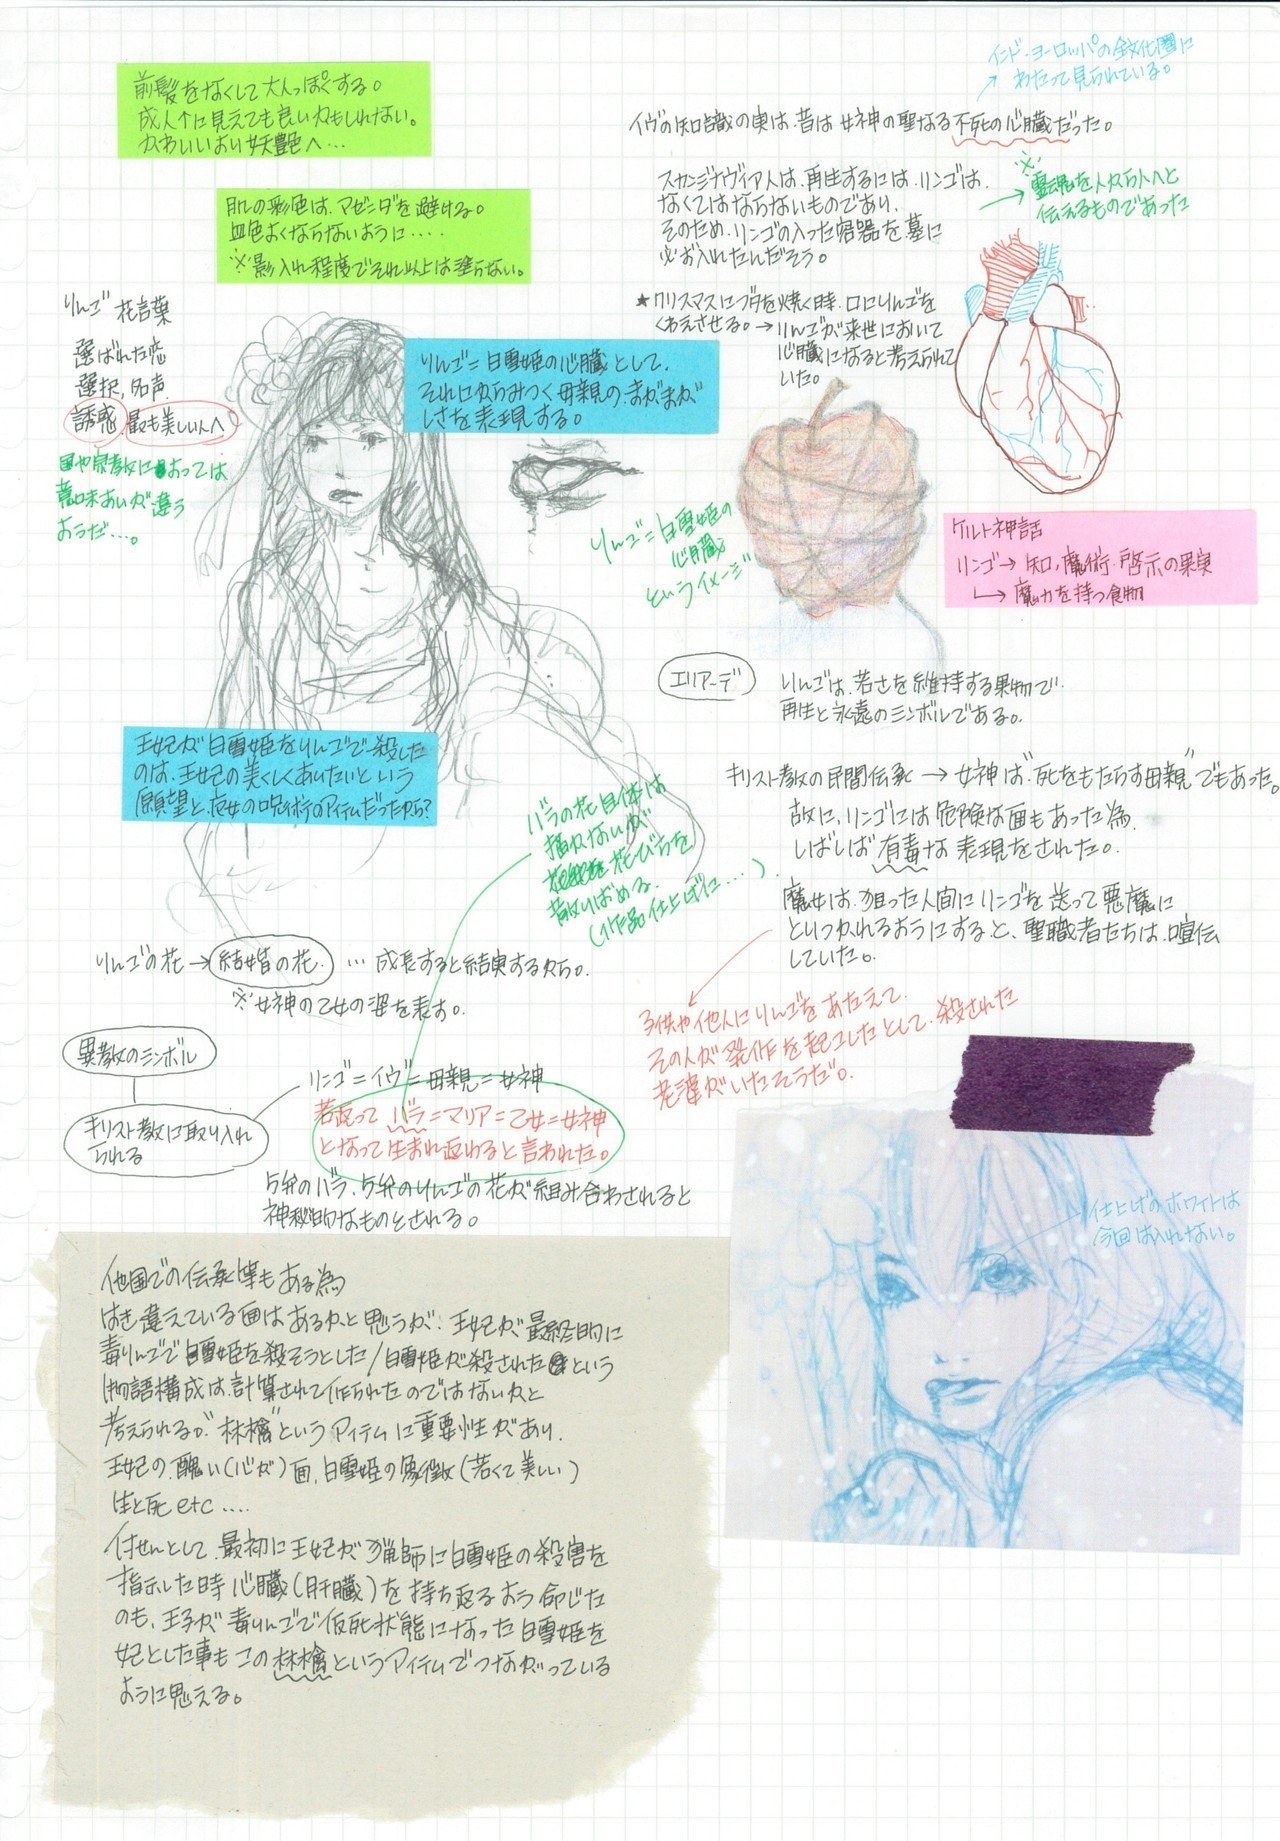 前髪をなくして大人っぽくする。
成人↑に見えても良いかもしれない。
かわいいより妖艶へ…
肌の彩色は、マゼンダを避ける。
血色よくならないように....
※影入れ程度でそれ以上は塗らない。
りんご 花言葉
選ばれた恋
選択, 名声
誘惑, 最も美しい人へ
国や宗教によっては
意味あいが違う
ようだ…。
りんご=白雪姫の心臓として、
それにからみつく母親のまがまが
しさを表現する。
インド・ヨーロッパの全文化圏に
わたって見られている。
イヴの知識の実は、昔は女神の聖なる不死の心臓だった。
スカンジナヴィア人は、再生するには、リンゴは、
なくてはならないものであり、
そのため、リンゴの入った容器を墓に
必ず入れたんだそう。
※
→霊魂を人から人へと
伝えるものであった
★クリスマスにブタを焼く時、口にりんごを
くわえさせる。→りんごが来世において
心臓になると考えられて
いた。
りんご=白雪姫の
心臓
というイメージ
ケルト神話
リンゴ→知, 魔術・啓示の果実
→魔力を持つ食物
エリアーデ
りんごは、若さを維持する果物で、
再生と永遠のシンボルである。
王妃が白雪姫をりんごで殺した
のは、王妃の美しくありたいという
願望と、魔女の呪術のアイテムだったから?
バラの花自体は
描かないが
花びらを
散りばめる。
(作品仕上げに....)
キリスト教の民間伝承→女神は"死をもたらす母親"でもあった。
故に、リンゴには危険な面もあった為、
しばしば有毒な表現をされた。
魔女は、狙った人間にリンゴを送って悪魔に
とりつかれるようにすると、聖職者たちは、喧伝
していた。
子供や他人にリンゴをあたえて、
その人が発作を起こしたとして、殺された
老婆がいたそうだ。
りんごの花→結婚の花. …成長すると結実するから。
※女神の乙女の姿を表す。
異教のシンボル
キリスト教に取り入れ
られる
リンゴ=イヴ=母親=女神
若返って バラ=マリア=乙女=女神
となって生まれ変わると言われた。
5弁のバラ、5弁のりんごの花が組み合わされると
神秘的なものとされる。
仕上げのホワイトは
今回は入れない。
他国での伝承等もある為
はき違えている面はあるかと思うが、王妃が最終的に
毒りんごで白雪姫を殺そうとした/白雪姫が殺されたという
物語構成は、計算されて作られたのではないかと
考えられる。"林檎"というアイテムに重要性があり、
王妃の醜い(心が)面、白雪姫の象徴(若くて美しい)
生と死etc....
付せんとして、最初に王妃が猟師に白雪姫の殺害を
指示した時 心臓(肝臓)を持ち返るよう命じた
のも、王子が毒りんごで仮死状態になった白雪姫を
妃とした事もこの林檎というアイテムでつながっている
ように思える。